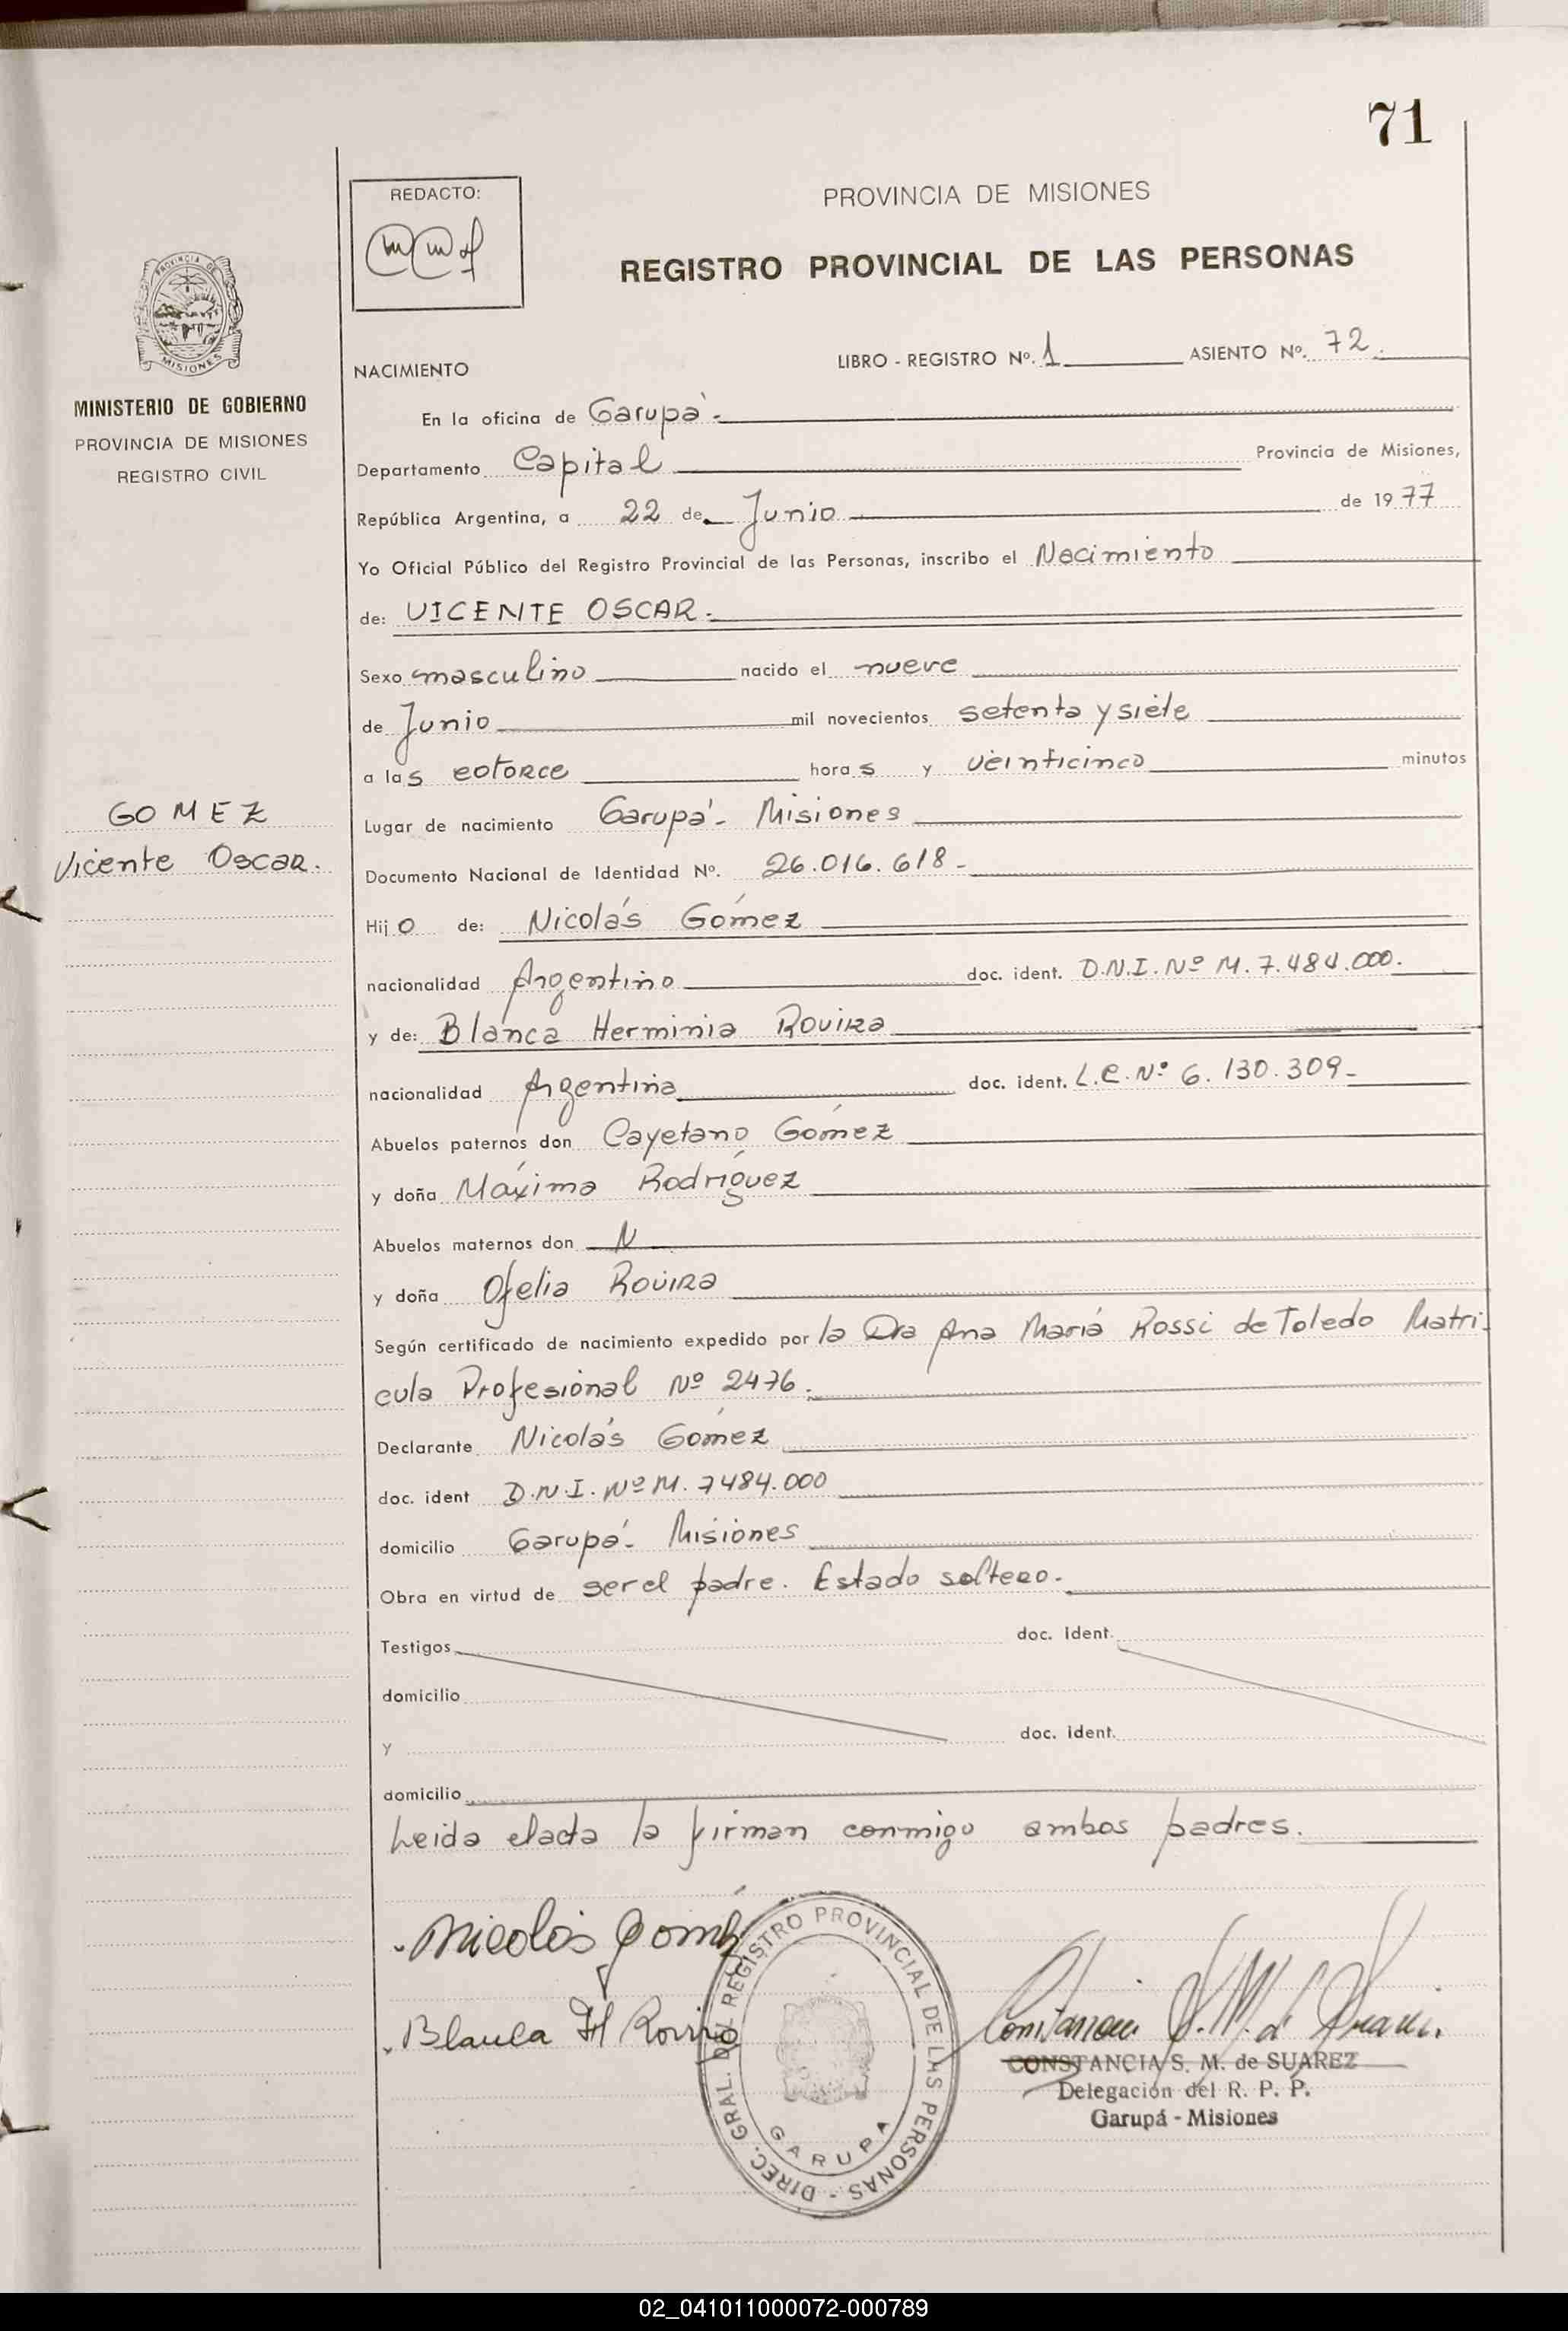 71
REDACTO:
PROVINCIA DE MISIONES
REGISTRO PROVINCIAL DE LAS PERSONAS
PROVINCIA DE
MISIONES
MINISTERIO DE GOBIERNO
PROVINCIA DE MISIONES
REGISTRO CIVIL
LIBRO - REGISTRO Nº. 1 ASIENTO Nº. 72.
NACIMIENTO
En la oficina de Garupá.
Departamento Capital Provincia de Misiones,
República Argentina, a 22 de Junio de 1977
Yo Oficial Público del Registro Provincial de las Personas, inscribo el Nacimiento
de: VICENTE OSCAR.
Sexo masculino nacido el nueve
de Junio mil novecientos setenta y siete
a las catorce horas y veinticinco minutos
GOMEZ
Vicente Oscar.
Lugar de nacimiento Garupá - Misiones
Documento Nacional de Identidad Nº. 26.016.618-
Hijo de: Nicolás Gómez
nacionalidad Argentino doc. ident. D.N.I. Nº M. 7.484.000.
y de: Blanca Herminia Rovira
nacionalidad Argentina doc. ident. L.C. Nº 6.130.309-
Abuelos paternos don Cayetano Gómez
y doña Máxima Rodríguez
Abuelos maternos don N
y doña Ofelia Rovira
Según certificado de nacimiento expedido por la Dra Ana María Rossi de Toledo Matri-
cula Profesional Nº 2476.
Declarante Nicolás Gómez
doc. ident D.N.I. Nº M. 7484.000
domicilio Garupá - Misiones
Obra en virtud de ser el padre. Estado soltero.
Testigos doc. ident.
domicilio
y doc. ident.
domicilio
Leida el acta la firman conmigo ambos padres.
Nicolás Gómez
Blanca H Rovira
DIREC. GRAL. DEL REGISTRO PROVINCIAL DE LAS PERSONAS -
GARUPA
CONSTANCIA S. M. de SUAREZ
Delegación del R. P. P.
Garupá - Misiones
02_041011000072-000789